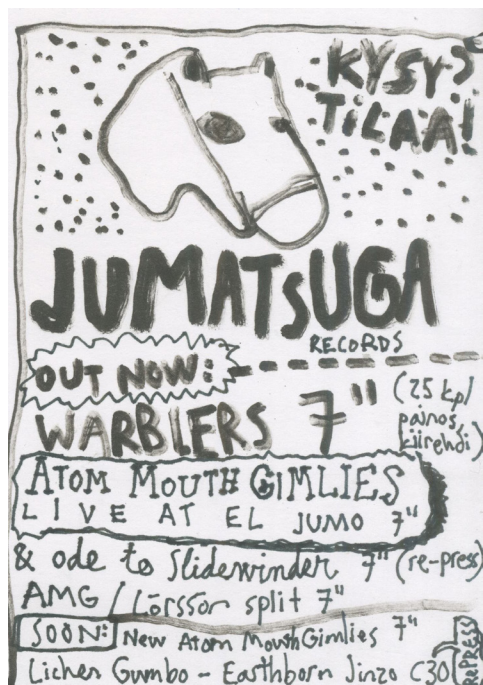 KYSY?
TiLAA!
JUMATSUGA
RECORDS
OUT NOW:
WARBLERS 7"
(25 kpl
painos,
kiirehdi)
ATOM MOUTH GIMLIES
LIVE AT EL JUMO 7"
& ode to Slidewinder 7" (re-press)
AMG / Lörssör split 7"
SOON: New Atom Mouth Gimlies 7"
Lichen Gumbo - Easthborn Jinzo C30
RePRESS